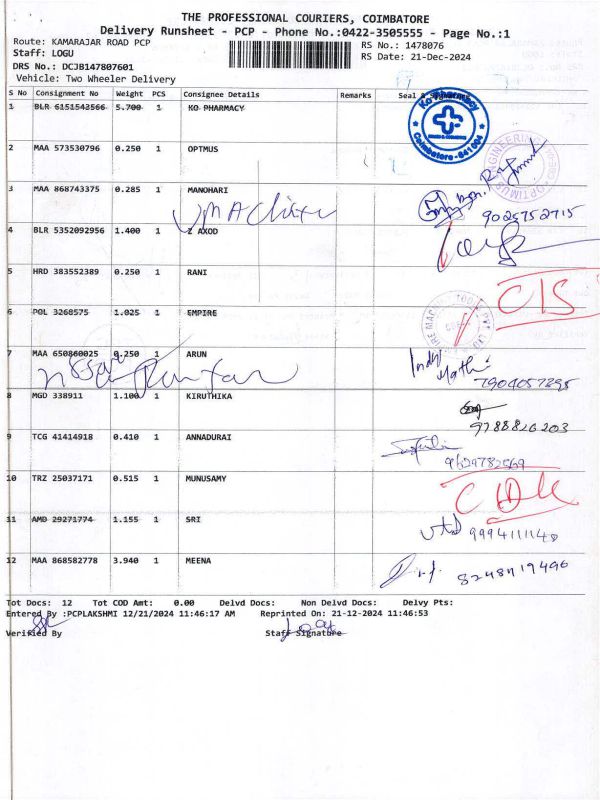 THE PROFESSIONAL COURIERS, COIMBATORE
Delivery Runsheet - PCP - Phone No.:0422-3505555 - Page No.:1
Route: KAMARAJAR ROAD PCP RS No.: 1478076
Staff: LOGU RS Date: 21-Dec-2024
DRS No.: DCJB147807601
Vehicle: Two Wheeler Delivery
S No Consignment No Weight PCS Consignee Details Remarks Seal &
Ko Pharmacy
Coimbatore-641004
1 BLR 6151543566 5.700 1 KO PHARMACY
2 MAA 573530796 0.250 1 OPTMUS
3 MAA 868743375 0.285 1 MANOHARI
9025752715
4 BLR 5352092956 1.400 1 Z AXOD
5 HRD 383552389 0.250 1 RANI
6 POL 3268575 1.025 1 EMPIRE
7 MAA 650860025 0.250 1 ARUN
7904057295
8 MGD 338911 1.100 1 KIRUTHIKA
9788826203
9 TCG 41414918 0.410 1 ANNADURAI
9629782569
10 TRZ 25037171 0.515 1 MUNUSAMY
11 AMD 29271774 1.155 1 SRI
9994111148
12 MAA 868582778 3.940 1 MEENA
Tot Docs: 12 Tot COD Amt: 0.00 Delvd Docs: Non Delvd Docs: Delvy Pts:
Entered By :PCPLAKSHMI 12/21/2024 11:46:17 AM Reprinted On: 21-12-2024 11:46:53
Verified By Staff Signature